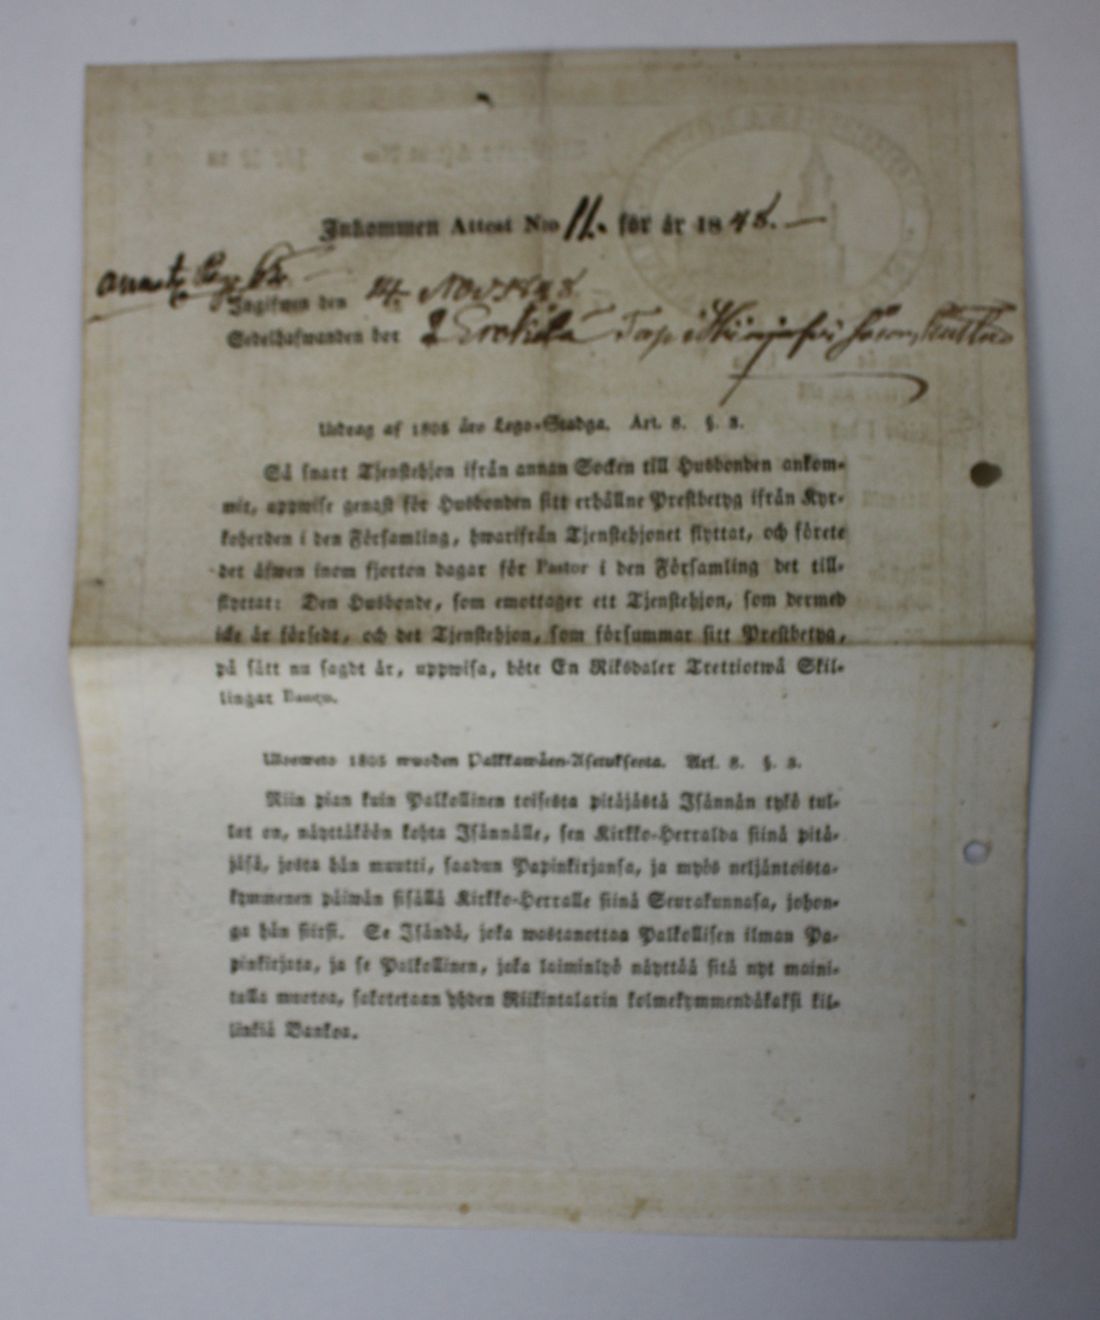 Inkommen Attest Nro 11. för år 1848.
Ingifwen den 14 Nov 1848
Sedelhafwanden der
Utdrag af 1805 års Lego-Stadga. Art. 8. §. 3.
Så snart Tjenstehjon ifrån annan Socken till Husbonden ankom-
mit, uppwise genast för Husbonden sitt erhållne Prestbetyg ifrån Kyr-
koherden i den Församling, hwarifrån Tjenstehjonet flyttat, och förete
det äfwen inom fjorton dagar för Pastor i den Församling det till-
flyttat: Den Husbonde, som emottager ett Tjenstehjon, som dermed
icke är försedt, och det Tjenstehjon, som försummar sitt Prestbetyg,
på sätt nu sagdt är, uppwisa, böte En Riksdaler Trettiotwå Skil-
lingar Banco.
Ulosweto 1805 wuoden Palkkawäen-Asetuksesta. Art. 8. §. 3.
Niin pian kuin Palkollinen toisesta pitäjästä Isännän tykö tul-
lut on, näyttäköön kohta Isännälle, sen Kirkko-Herralda siinä pitä-
jäsä, josta hän muutti, saadun Papinkirjansa, ja myös neljäntoista-
kymmenen päiwän sisällä Kirkko-Herralle siinä Seurakunnasa, johon-
ga hän siirsi. Se Isändä, joka wastanottaa Palkollisen ilman Pa-
pinkirjata, ja se Palkollinen, joka laiminlyö näyttää sitä nyt maini-
tulla muotoa, sakotetaan yhden Riikintalarin kolmekymmendäkaksi kil-
linkiä Bankoa.